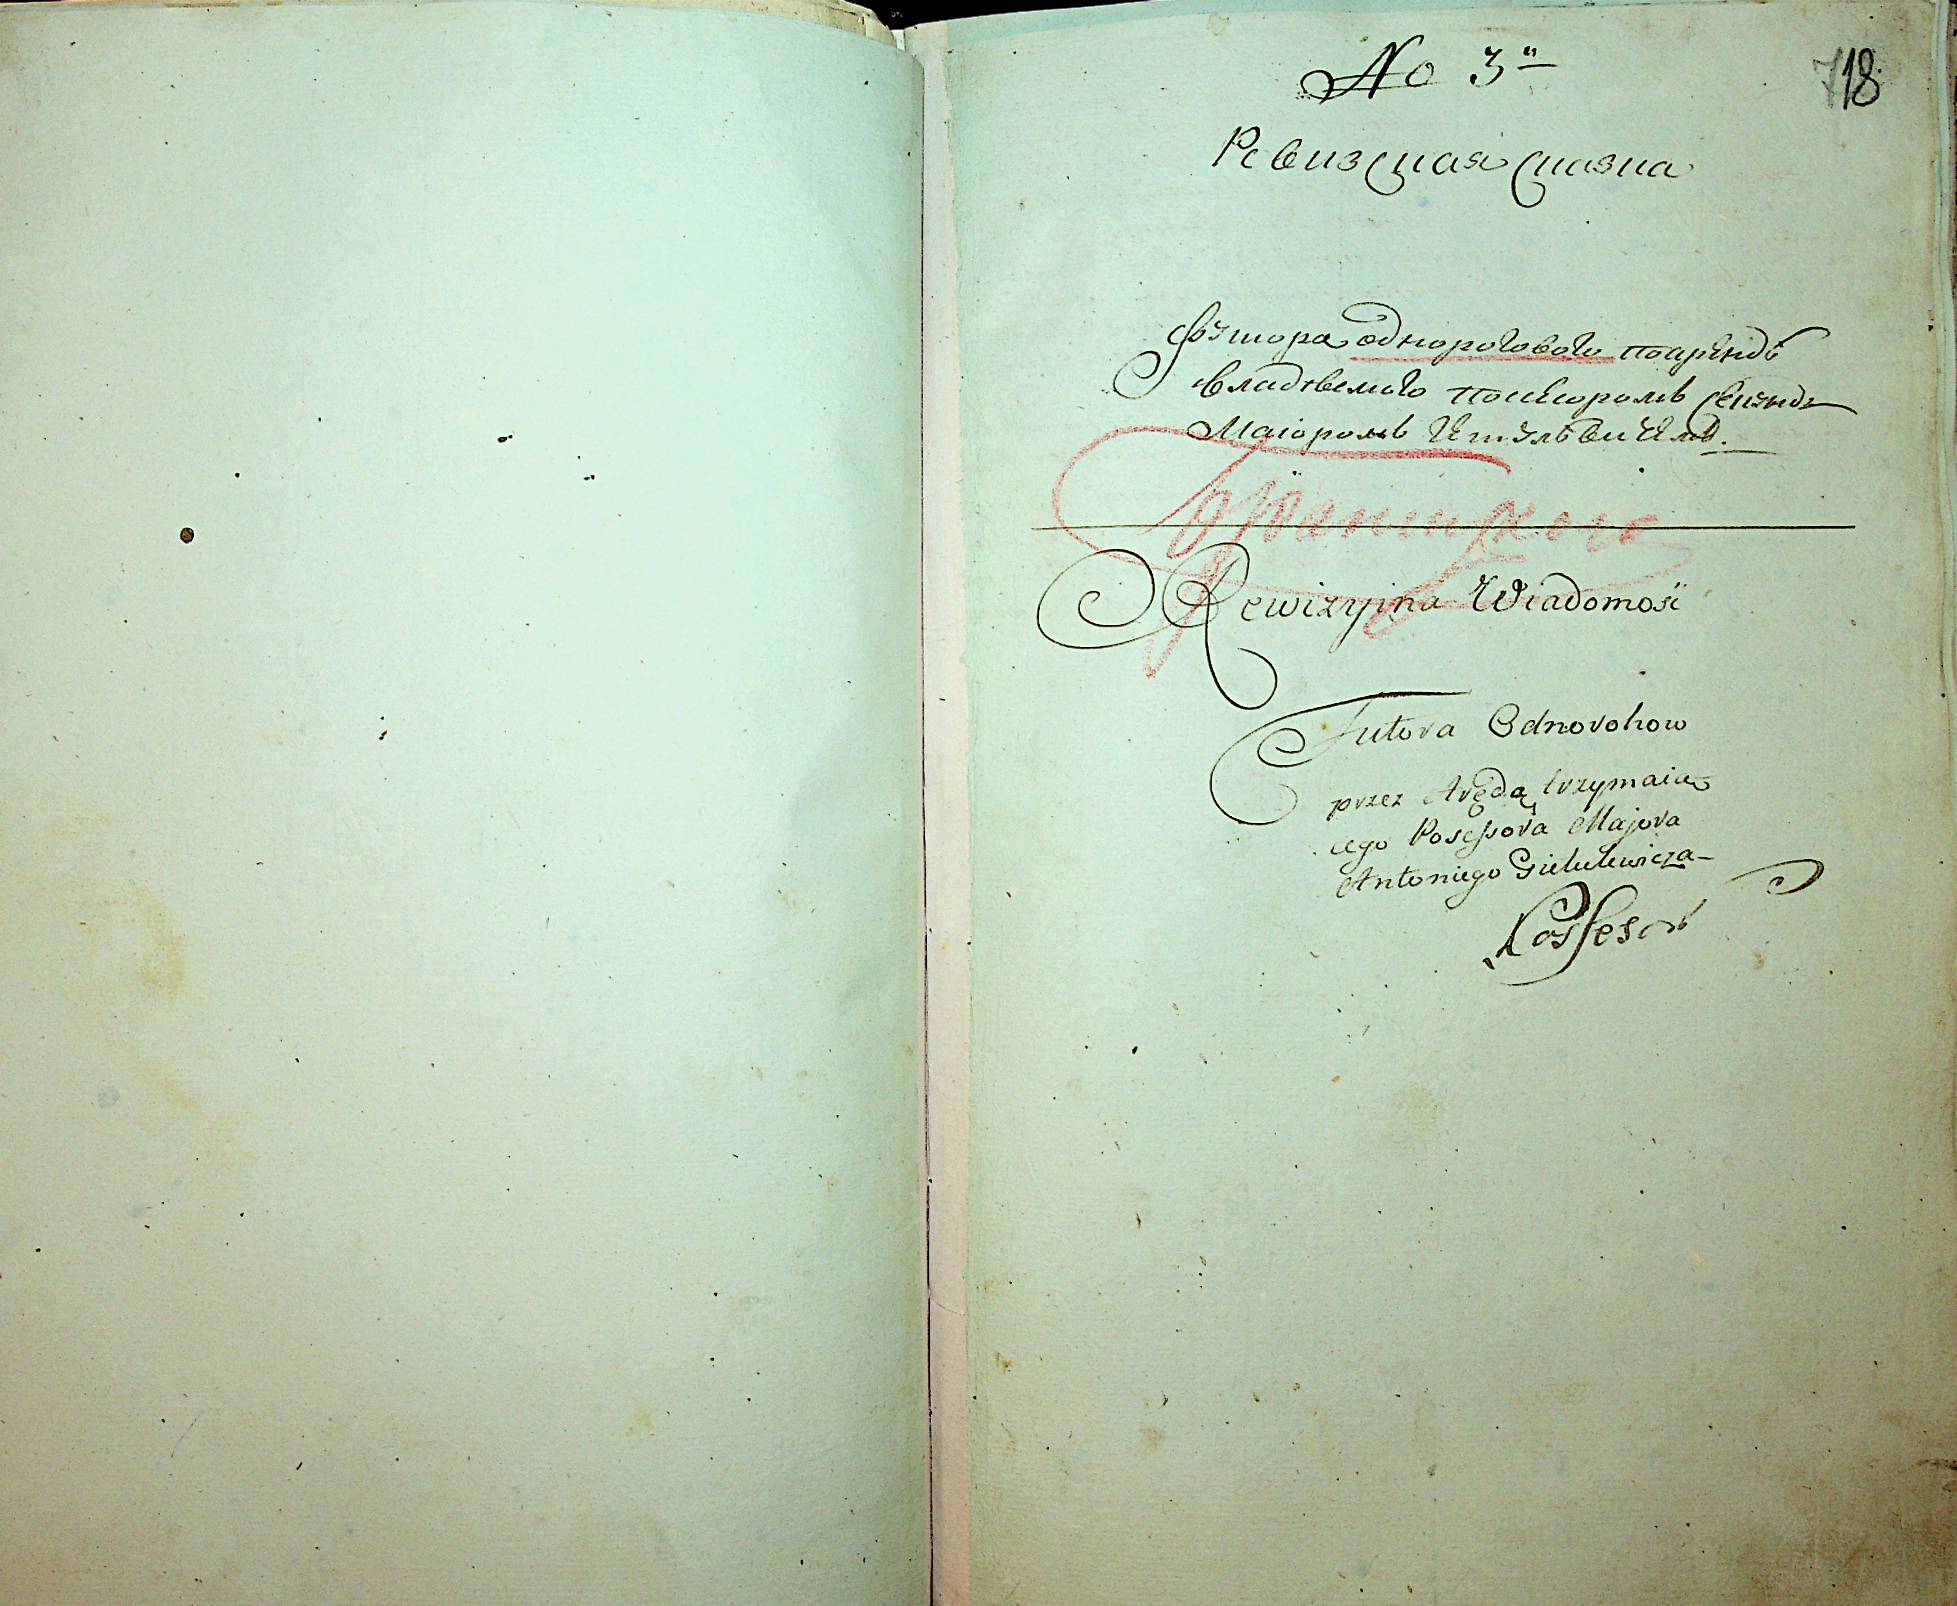 No 3"
718
Ревизская сказка
Футора однорогового поаренде
владеемого Посесоромъ Секундъ
Маіоромъ
Rewizyjna Wiadomość
Futora Odnorohow
przez Arędą trzymaią
cego Posessora Majora
Antoniego Gielulewicza
Possesor